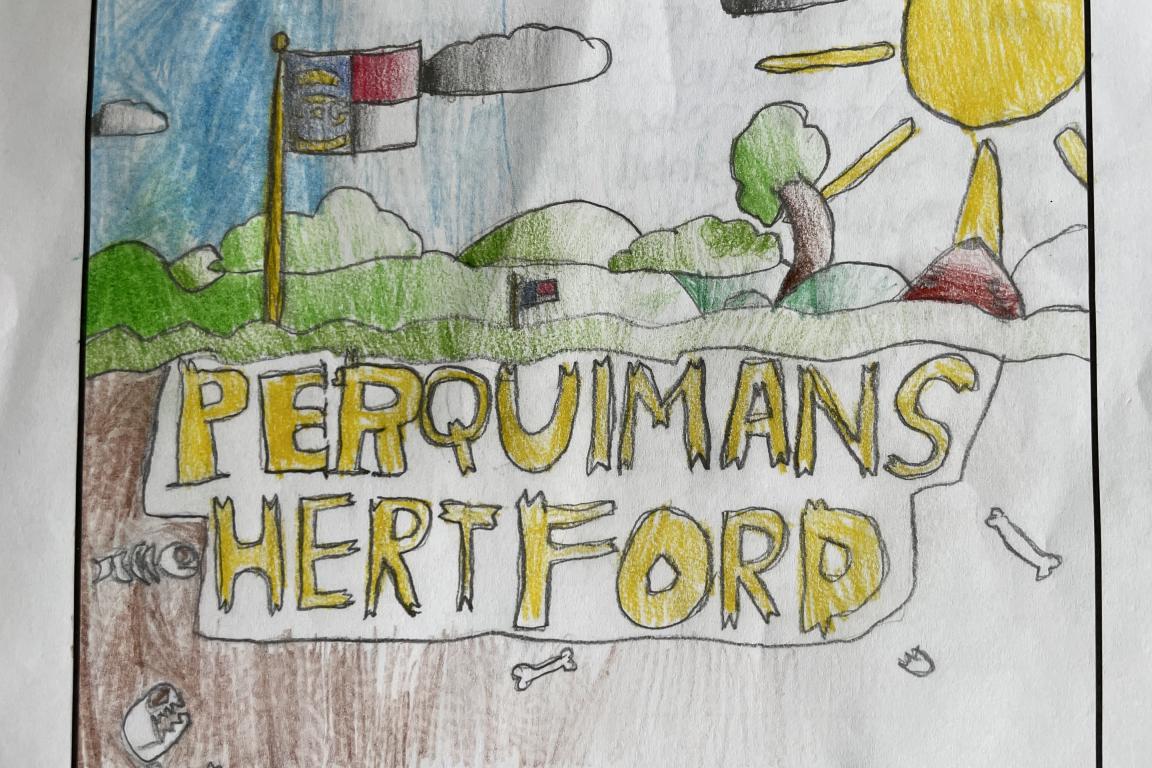 PERQUIMANS
HERTFORD